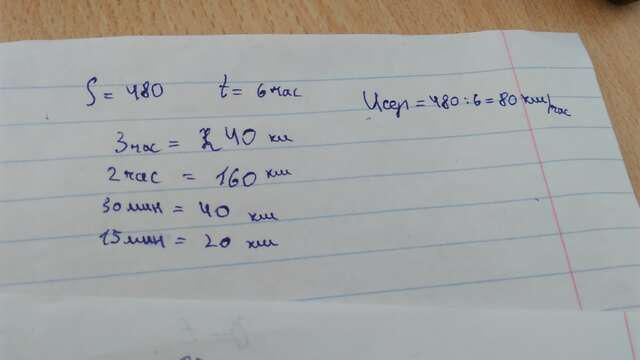 S = 480 t = 6 час
Uсер = 480 : 6 = 80 км/час
3 час = 240 км
2 час = 160 км
30 мин = 40 км
15 мин = 20 км